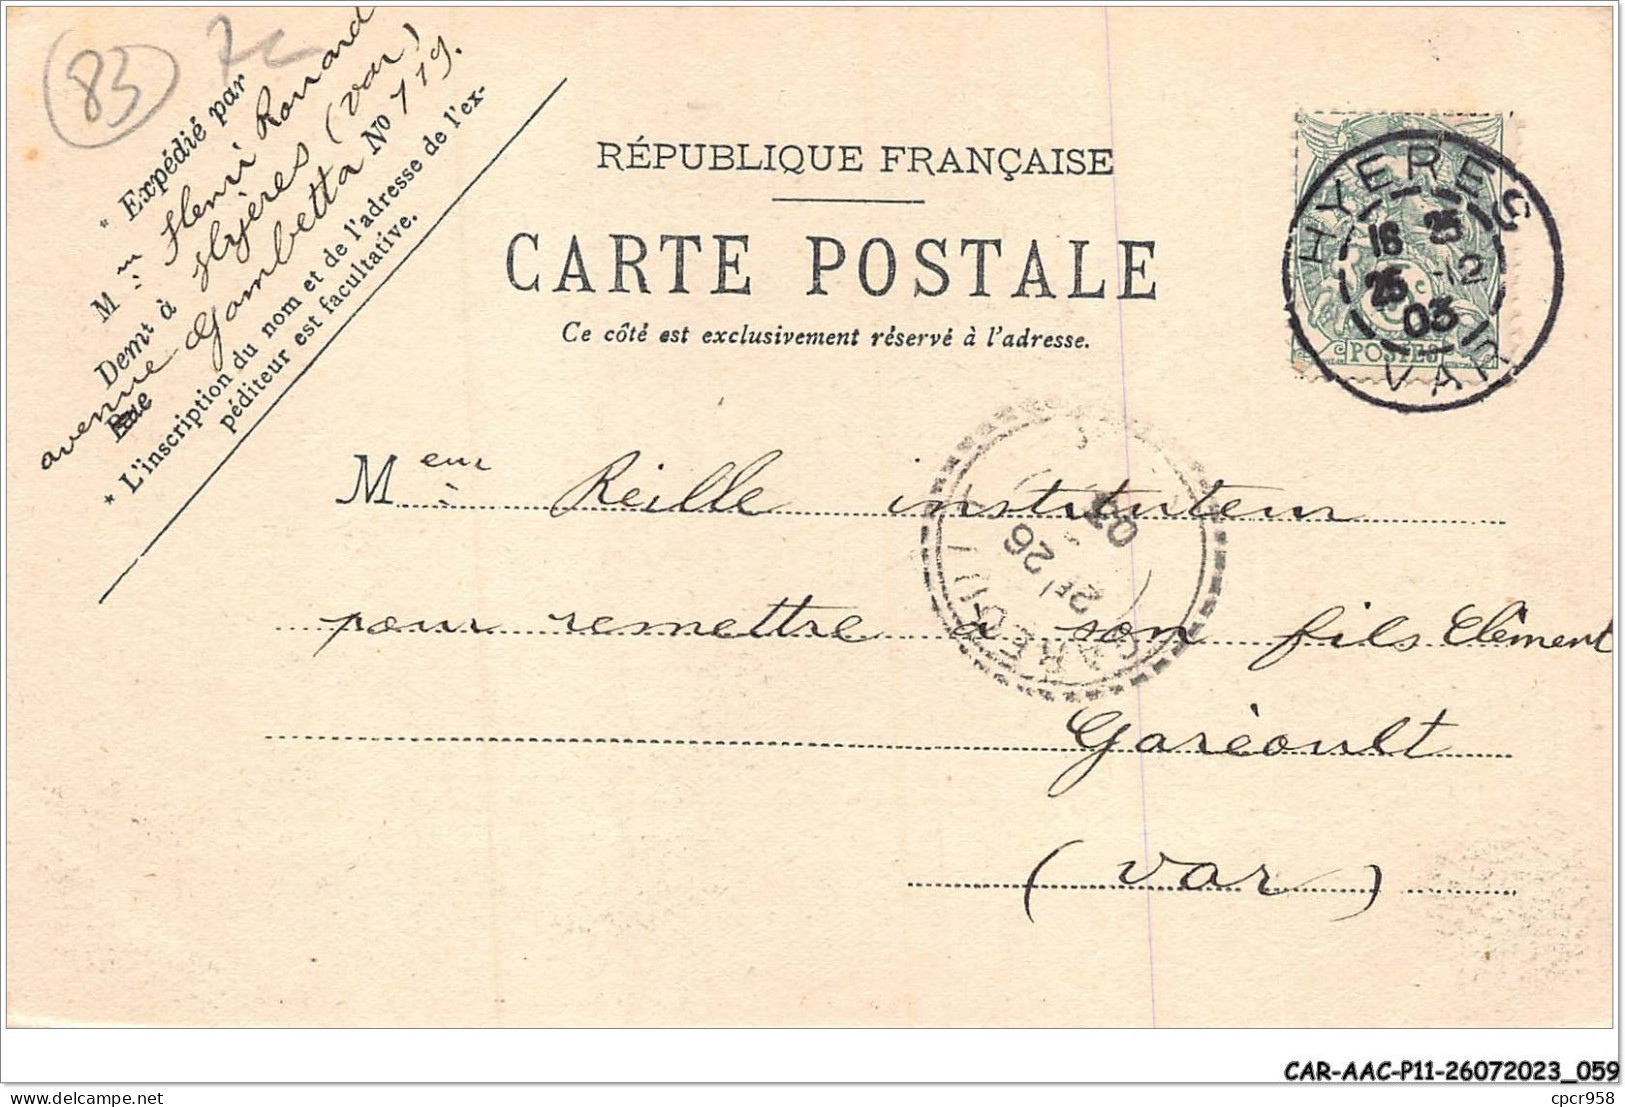 83
* Expédié par
M m Henri Ronard
Demt à Hyères (Var)
avenue Gambetta No 119.
Rue
* L'inscription du nom et de l'adresse de l'ex-
péditeur est facultative.
RÉPUBLIQUE FRANÇAISE
CARTE POSTALE
Ce côté est exclusivement réservé à l'adresse.
POSTES
HYERES
16 25
25 -12
03
VAR
Meur Reille instituteur
à
pour remettre à son fils Clément
Garéoult
(Var)
GAREOULT
2E/26
03
CAR-AAC-P11-26072023_059
cpcr958